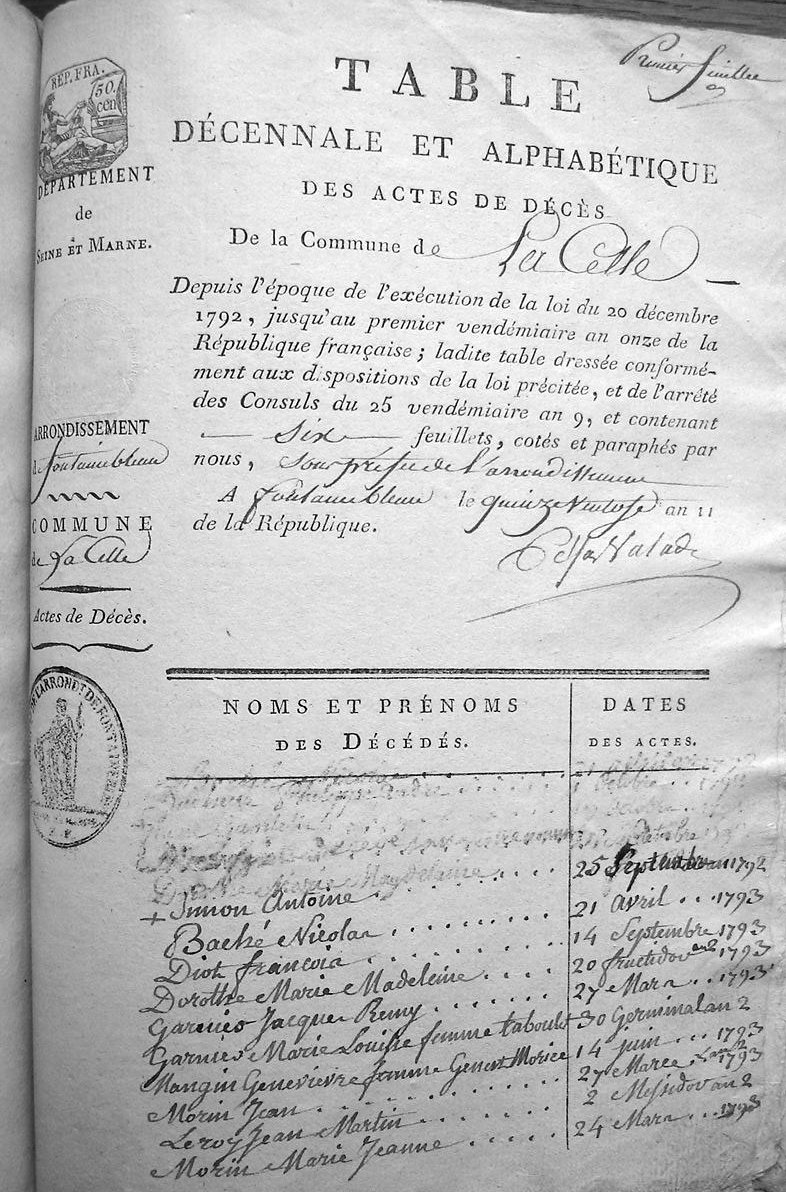 Premier feuillet
REP. FRA.
50.
cen
TABLE
DÉCENNALE ET ALPHABÉTIQUE
DES ACTES DE DÉCÈS
De la Commune de La Celle
Depuis l'époque de l'exécution de la loi du 20 décembre
1792, jusqu'au premier vendémiaire an onze de la
République française; ladite table dressée conformé-
ment aux dispositions de la loi précitée, et de l'arrêté
des Consuls du 25 vendémiaire an 9, et contenant
Six feuillets, cotés et paraphés par
nous, Sous préfet de l'arrondissement
A fontainebleau le quinze Ventose an 11
de la République.
DÉPARTEMENT
de
SEINE ET MARNE.
ARRONDISSEMENT
de fontainebleau
COMMUNE
de La Celle
Actes de Décès.
NOMS ET PRÉNOMS
DES DÉCÉDÉS.
DATES
DES ACTES.
Dorothé Marie Magdelaine
+ Simon Antoine . . . 25 Septembre 1792
Baché Nicolas . . . 21 avril . . . 1793
Diot françois . . . 14 Septembre 1793
Dorothé Marie Madeleine . . . 20 fructidor an 2 1793
Garnier Jacques Remy . . . 27 Mars . . 1793
Garnier Marie Louise femme taboulet 30 Germinal an 2
Mangin Genevievre femme Genest Morice 14 juin . . . 1793
Morin Jean . . . 27 1793
Leroy Jean Martin . . . 2 Messidor an 2
Morin Marie Jeanne . . . 24 Mars . . . 1793